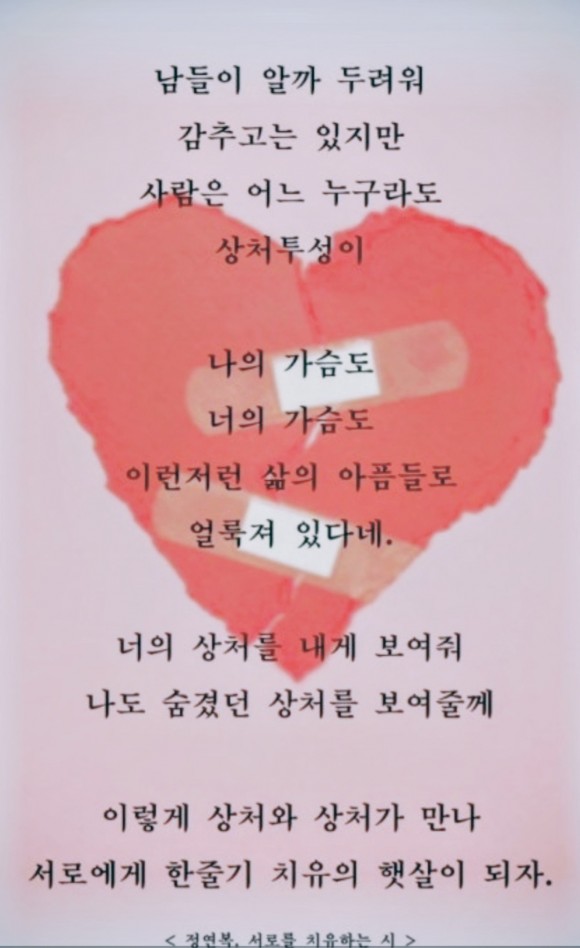 남들이 알까 두려워
감추고는 있지만
사람은 어느 누구라도
상처투성이
나의 가슴도
너의 가슴도
이런저런 삶의 아픔들로
얼룩져 있다네.
너의 상처를 내게 보여줘
나도 숨겼던 상처를 보여줄께
이렇게 상처와 상처가 만나
서로에게 한줄기 치유의 햇살이 되자.
< 정연복, 서로를 치유하는 시 >